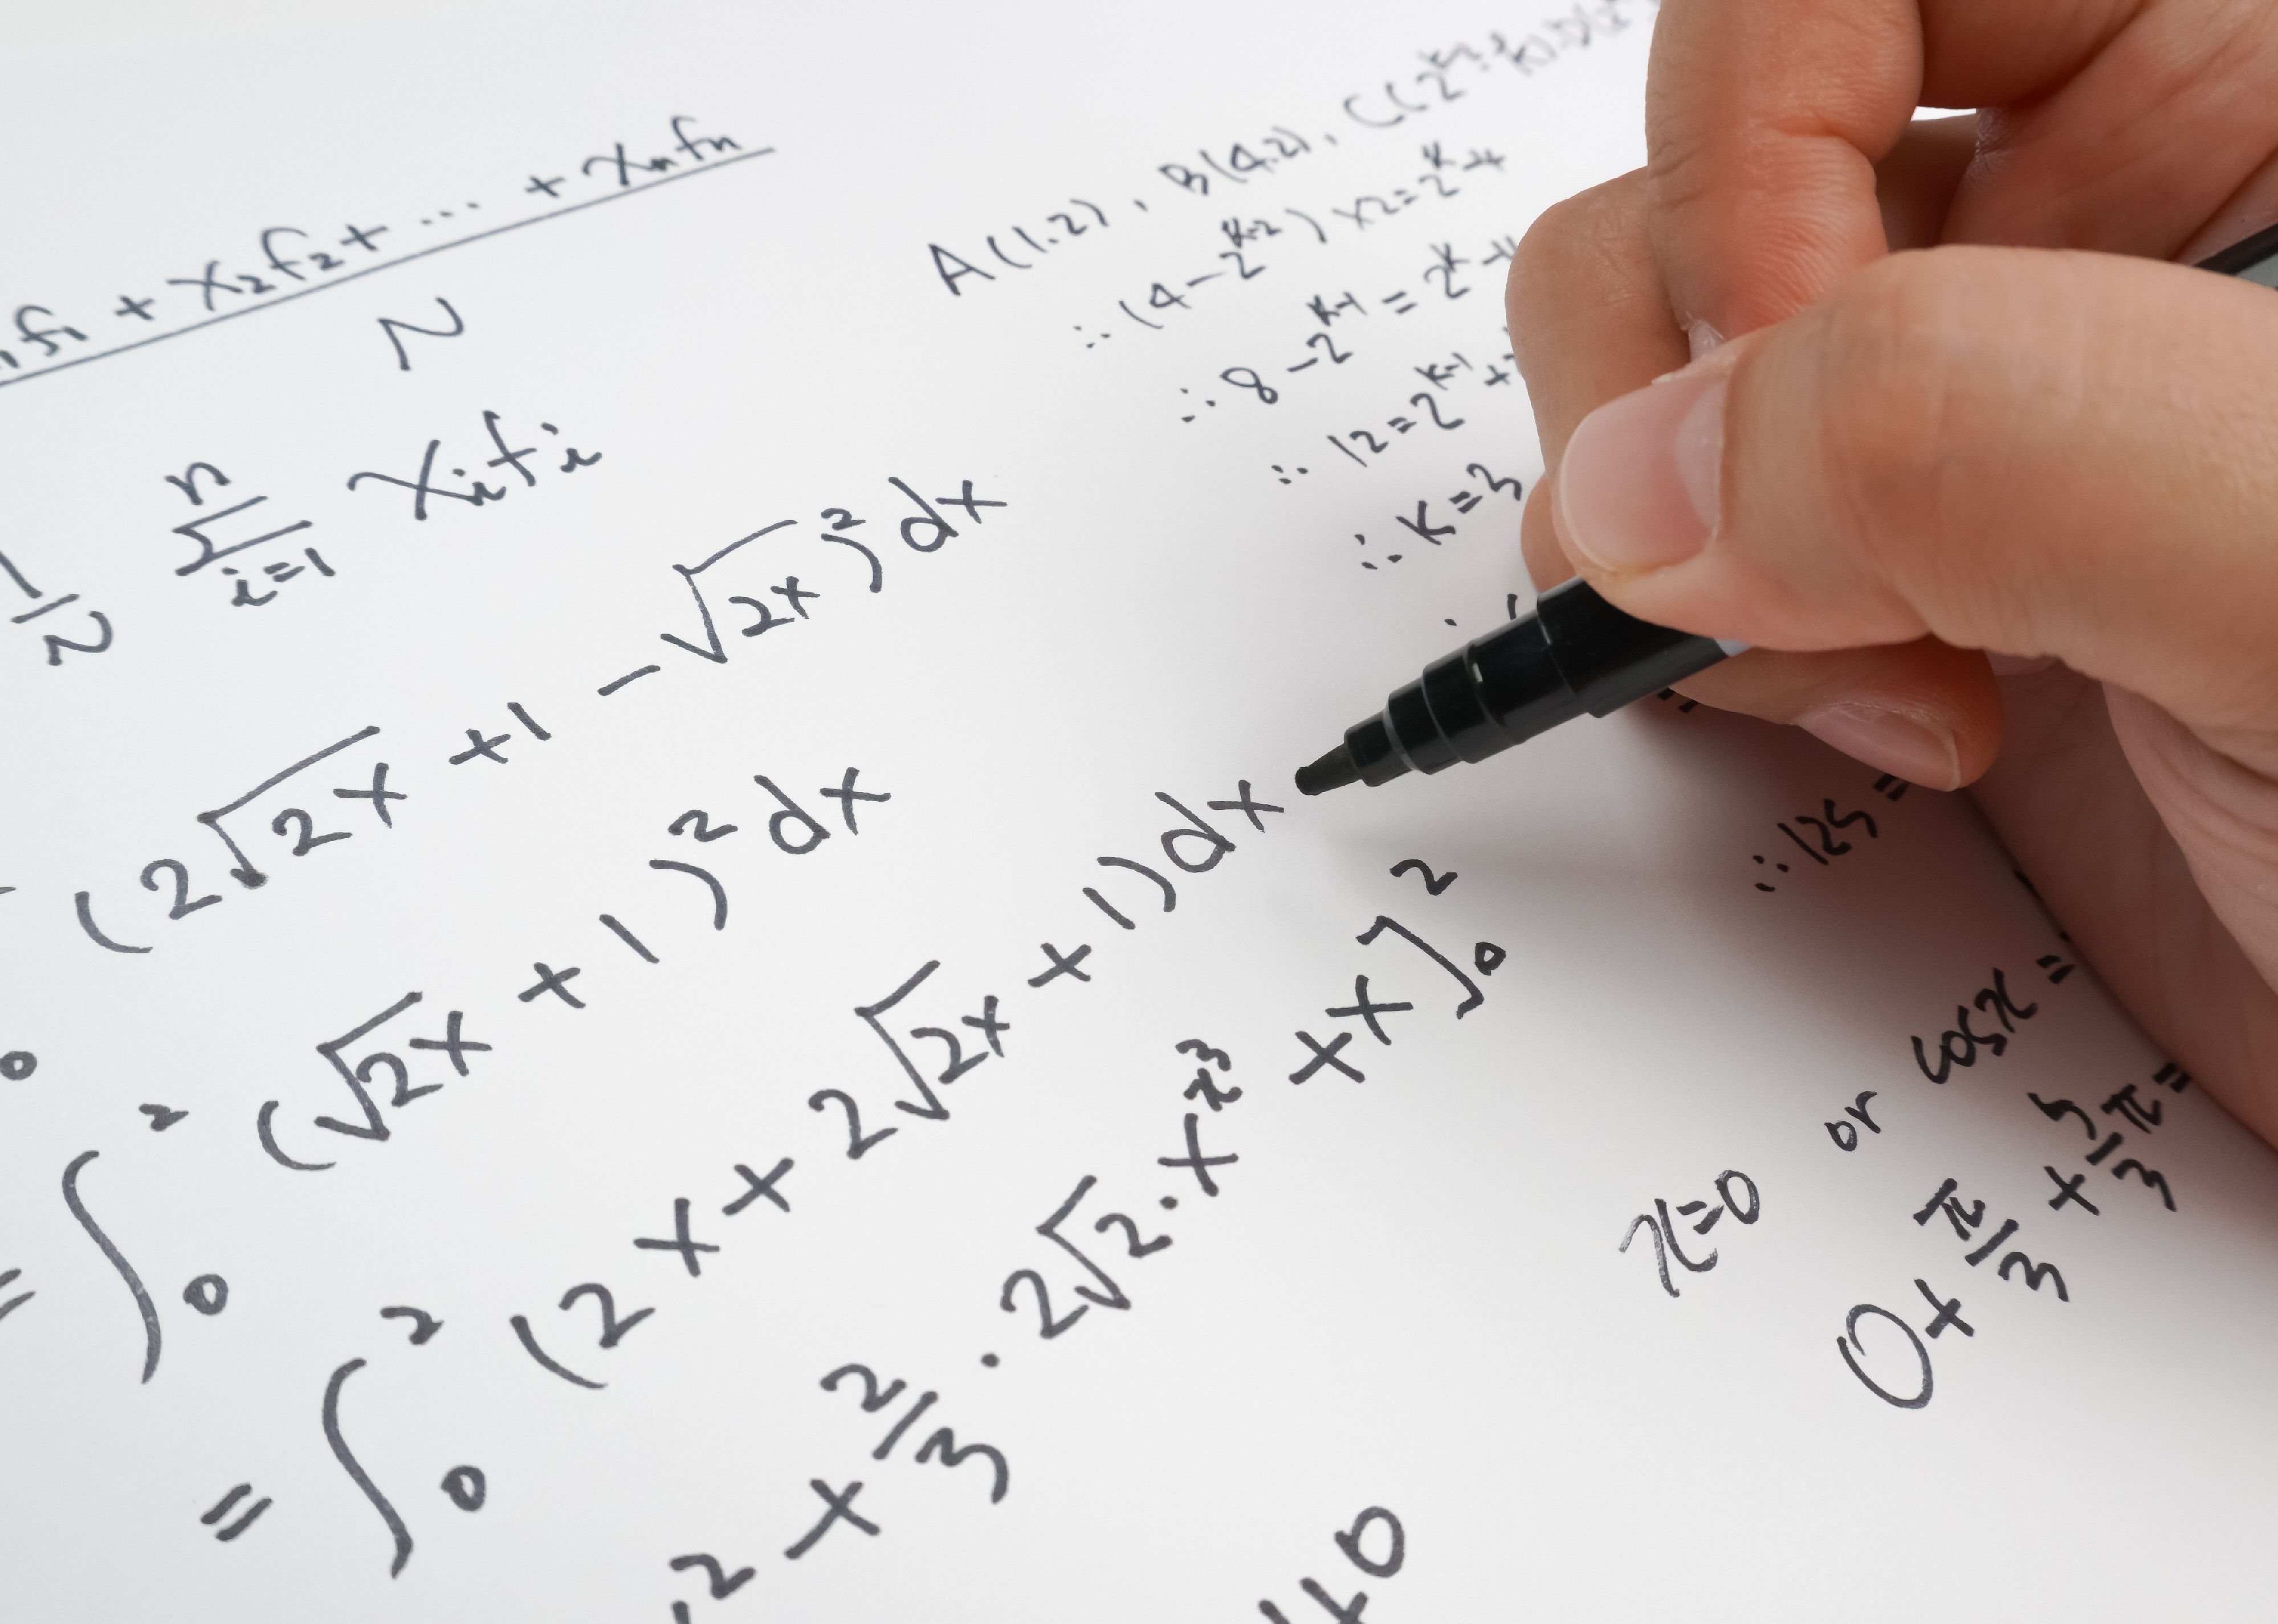 f₁ + x₂f₂ + ... + xₙfₙ
N
1/N n Σ i=1 xᵢfᵢ
(2√2x +1 -√2x)² dx
= ∫₀² (√2x + 1)² dx
= ∫₀² (2x + 2√2x + 1) dx
² + 2/3 · 2√2 · x + x]₀²
+0
A(1.2), B(4.2),
∴ (4-2ᴷ⁻²) x2=2ᴷ-4
∴ 8-2ᴷ⁻¹ = 2ᴷ-4
∴ 12=2ᴷ⁻¹ +
∴ K=3
∴ 125 =
x=0 or cosx =
0+ π/3 + 5/3 π =